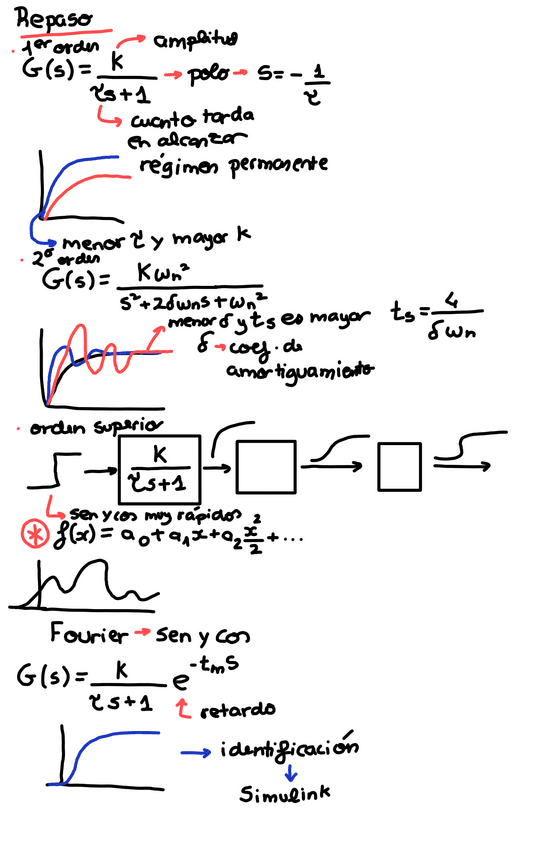 Repaso
· 1er orden → amplitud
G(s) = K / (τs+1) → polo → s = - 1/τ
↳ cuanto tarda
en alcanzar
régimen permanente
→ menor τ y mayor k
· 2º orden
G(s) = Kωn² / (s²+2δωns+ωn²)
menor δ y ts es mayor ts = 4 / (δωn)
δ → coef. de
amortiguamiento
· orden superior
K / (τs+1)
↳ sen y cos muy rápidos
* f(x) = a0 + a1x + a2 x²/2 + ...
Fourier → sen y cos
G(s) = K / (τs+1) e^(-tms)
retardo
→ identificación
↓
Simulink